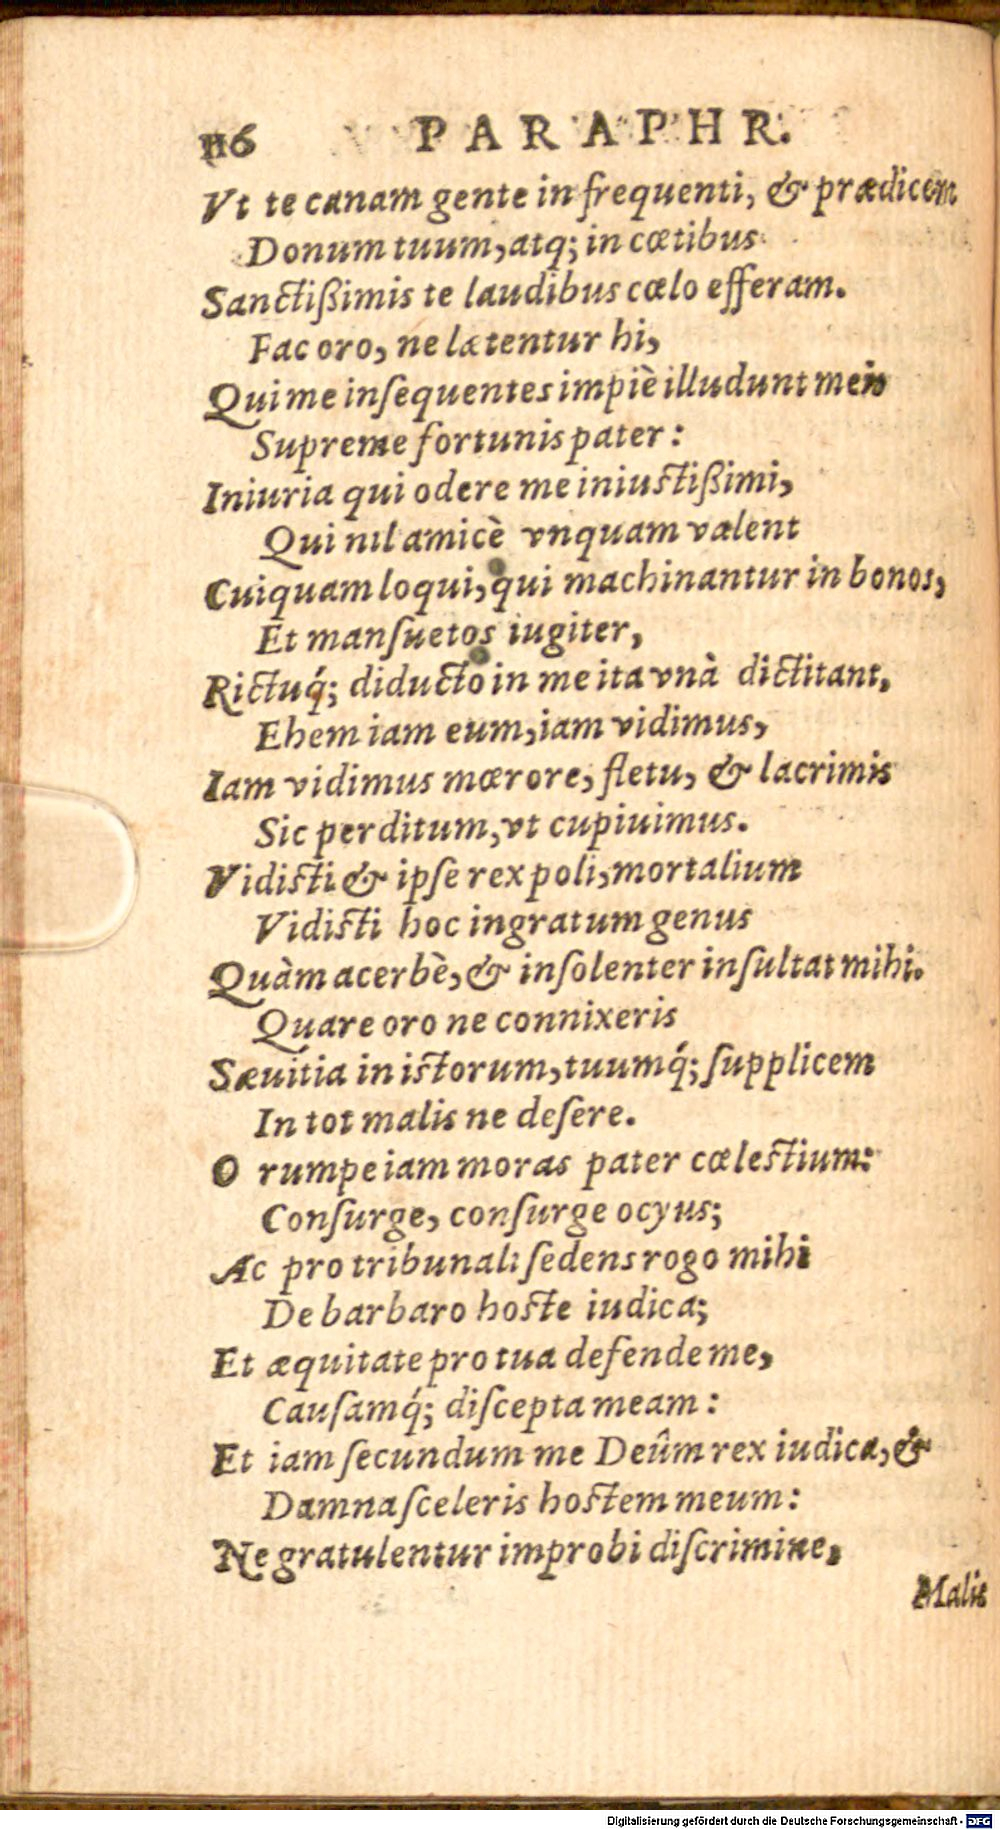 116 PARAPHR.
Vt te canam gente in frequenti, & prædicem
Donum tuum, atq; in cœtibus
Sanctißimis te laudibus cœlo efferam.
Fac oro, ne lætentur hi,
Qui me inſequentes impiè illudunt meis
Supreme fortunis pater:
Iniuria qui odere me iniustißimi,
Qui nil amicè vnquam valent
Cuiquam loqui, qui machinantur in bonos,
Et manſuetos iugiter,
Rictuq́; diducto in me ita vnà dictitant,
Ehem iam eum, iam vidimus,
Iam vidimus mœrore, fletu, & lacrimis
Sic perditum, vt cupiuimus.
Vidisti & ipſe rex poli, mortalium
Vidisti hoc ingratum genus
Quàm acerbè, & inſolenter inſultat mihi.
Quare oro ne connixeris
Sæuitia in istorum, tuumq́; ſupplicem
In tot malis ne deſere.
O rumpe iam moras pater cœlestium:
Conſurge, conſurge ocyus;
Ac pro tribunali ſedens rogo mihi
De barbaro hoste iudica;
Et æquitate pro tua defende me,
Cauſamq́; diſcepta meam:
Et iam ſecundum me Deûm rex iudica, &
Damna ſceleris hostem meum:
Ne gratulentur improbi diſcrimine,
Malis
Digitalisierung gefördert durch die Deutsche Forschungsgemeinschaft - DFG